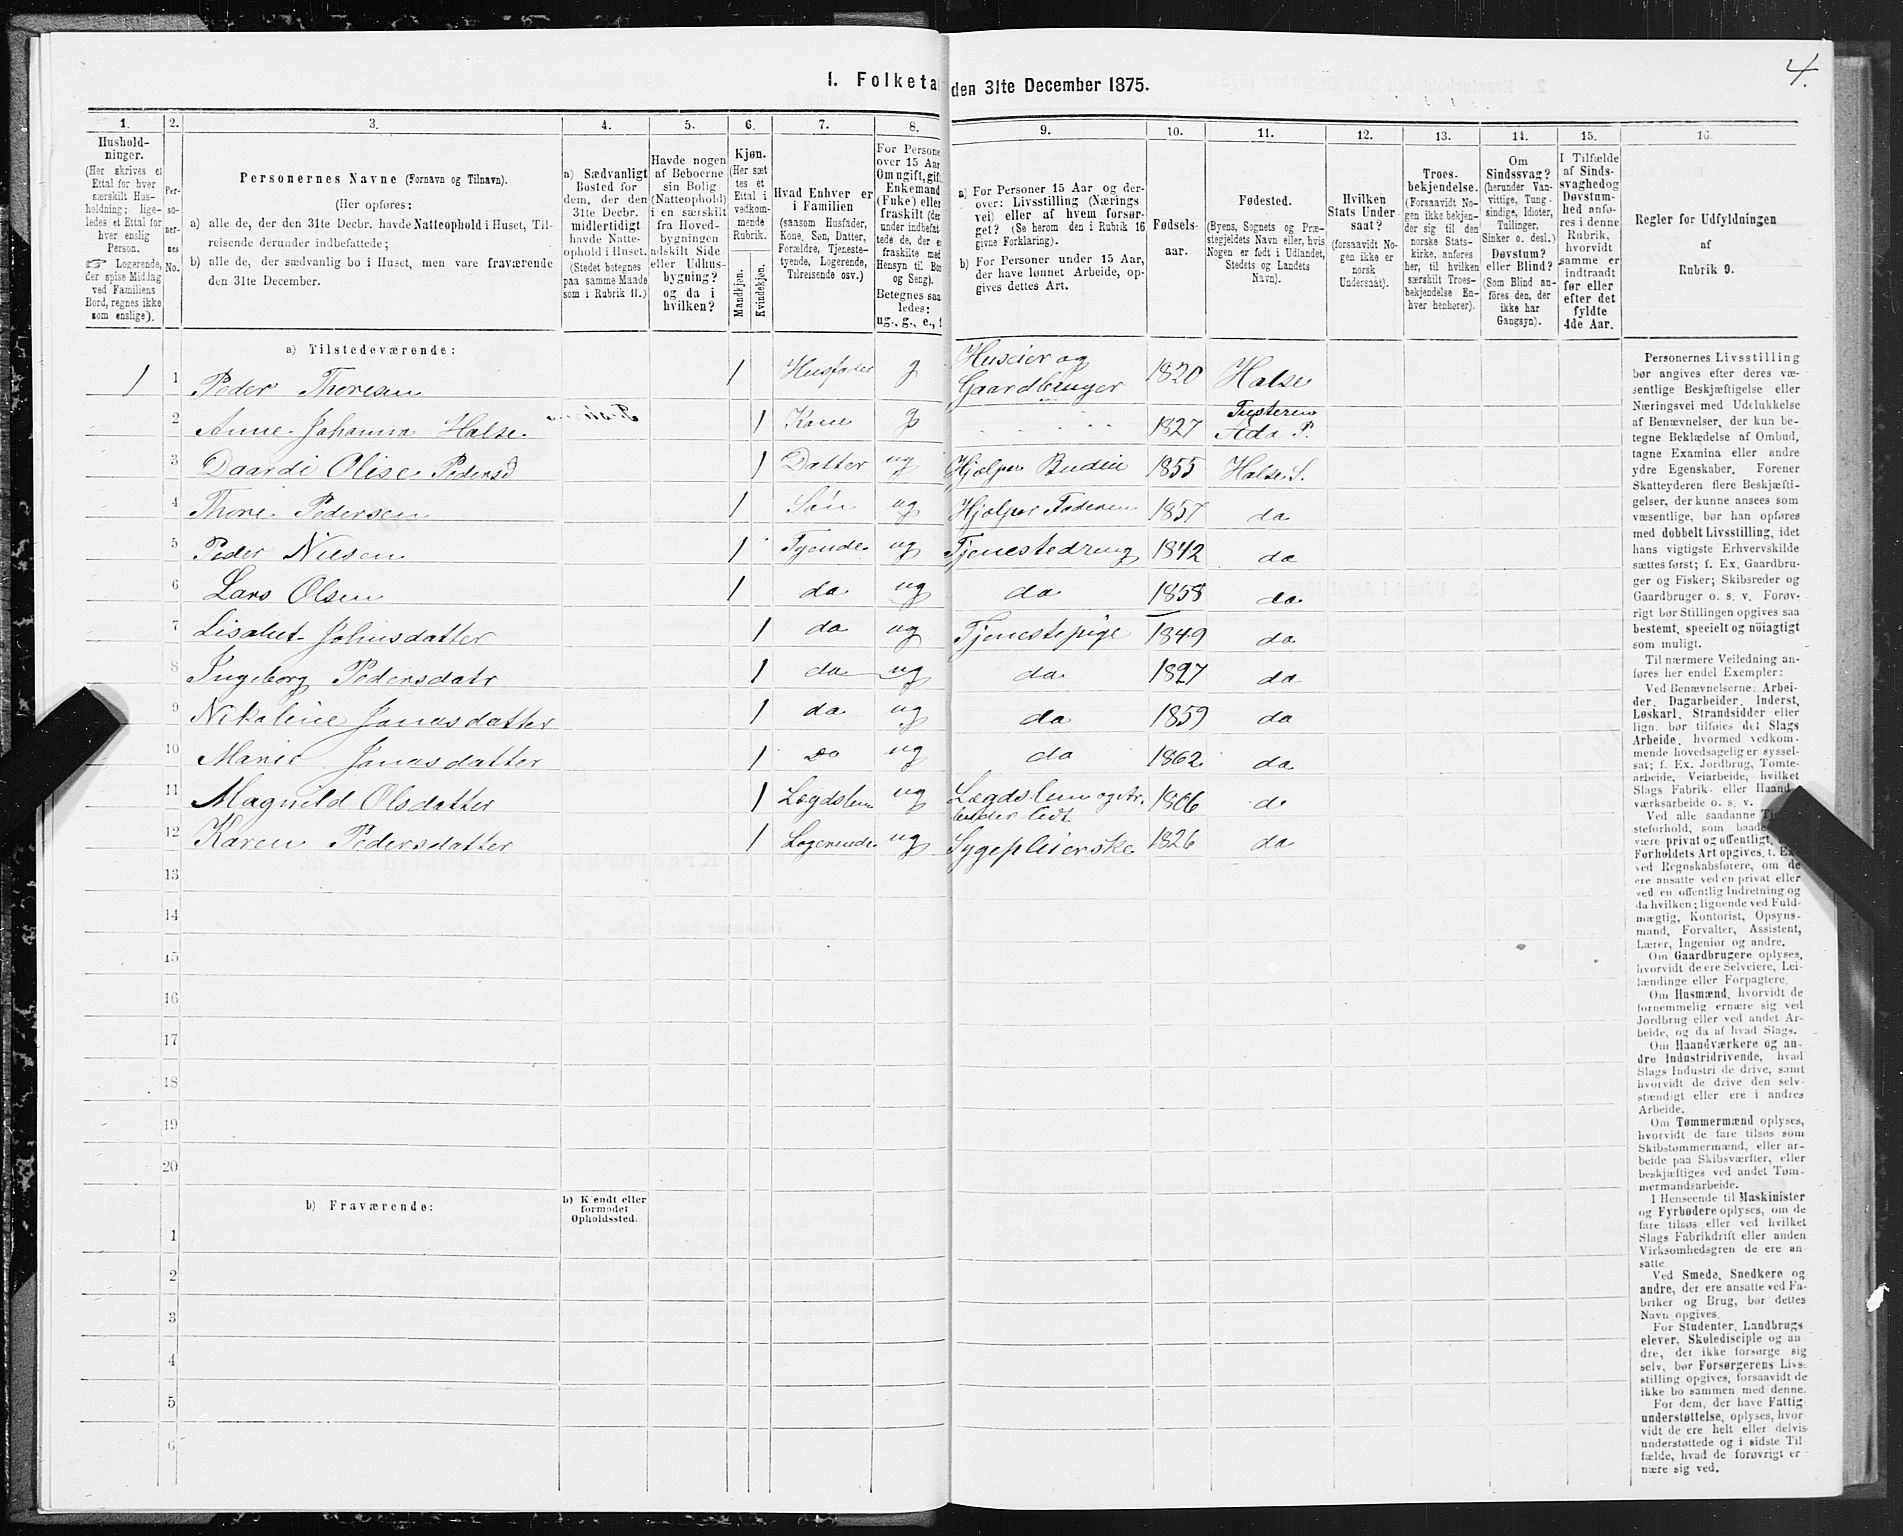 4.
1. Folketal den 31te December 1875.
1.
2.
3.
4.
5.
6.
7.
8.
9.
10.
11.
12.
13.
14.
15.
16.
Hushold-
ninger.
(Her skrives et
Ettal for hver
særskilt Hus-
holdning; lige-
ledes et Ettal for
hver enslig
Person.
☞ Logerende,
der spise Middag
ved Familiens
Bord, regnes ikke
som enslige).
Per-
so-
ner-
nes
No.
Personernes Navne (Fornavn og Tilnavn).
(Her opføres:
a) alle de, der den 31te Decbr. havde Natteophold i Huset, Til-
reisende derunder indbefattede;
b) alle de, der sædvanlig bo i Huset, men vare fraværende
den 31te December.
a) Sædvanligt
Bosted for
dem, der den
31te Decbr.
midlertidigt
havde Natte-
ophold i Huset.
(Stedet betegnes
paa samme Maade
som i Rubrik 11.)
Havde nogen
af Beboerne
sin Bolig
(Natteophold)
i en særskilt
fra Hoved-
bygningen
adskilt Side
eller Udhus-
bygning?
og da i
hvilken?
Kjøn.
(Her sæt
tes et
Ettal i
vedkom-
mende
Rubrik.
Mandkjøn.
Kvindekjøn.
Hvad Enhver er
i Familien
(saasom Husfader,
Kone, Søn, Datter,
Forældre, Tjeneste-
tyende, Logerende,
Tilreisende osv.)
For Persone
over 15 Aar
Om ugift, gif
Enkemand
(Enke) elle
fraskilt (der
under indbefat-
tede de, der e
fraskilte med
Hensyn til Bo
og Seng).
Betegnes saa
ledes:
ug., g., e., f
a) For Personer 15 Aar og der-
over: Livsstilling (Nærings
vei) eller af hvem forsør-
get? (Se herom den i Rubrik 16
givne Forklaring).
b) For Personer under 15 Aar,
der have lønnet Arbeide, op-
gives dettes Art.
Fødsels-
aar.
Fødested.
(Byens, Sognets og Præ-
stegjeldets Navn eller, hvis
Nogen er født i Udlandet,
Stedets og Landets
Navn).
Hvilken
Stats Under
saat?
(forsaavidt No-
gen ikke er
norsk
Undersaat).
Troes-
bekjendelse.
(Forsaavidt No-
gen ikke bekjen-
der sig til den
norske Stats-
kirke, anføres
her, til hvilken
særskilt Troes-
bekjendelse En-
hver henhører).
Om
Sindssvag?
(herunder Van-
vittige, Tung-
sindige, Idioter,
Tullinger,
Sinker o. desl.)
Døvstum?
eller Blind?
(Som Blind an-
føres den, der
ikke har
Gangsyn).
I Tilfælde
af Sinds-
svaghed og
Døvstum-
hed anfø-
res i denne
Rubrik,
hvorvidt
samme er
indtraadt
før eller
efter det
fyldte
4de Aar.
Regler for Udfyldningen
af
Rubrik 9.
a) Tilstedeværende:
1 1 Peder Thoresen 1 Husfader g Huseier og Gaardbruger 1820 Halse
2 Anne Johanna Halse. 1 Kone g 1827 Tusteren Ædø P.
3 Daardi Olise Pedersd 1 Datter ug Hjælper Budeie 1855 Halse S.
4 Thore Pedersen 1 Søn ug Hjælper Faderen 1857 do
5 Peder Nilsen 1 Tyende ug Tjenestedreng 1842 do
6 Lars Olsen 1 do ug do 1858 do
7 Lisabet Johnsdatter 1 do ug Tjenestepige 1849 do
8 Ingeborg Pedersdatr 1 do ug do 1827 do
9 Nikoline Jonasdatter 1 do ug do 1859 do
10 Marie Jonasdatter 1 do ug do 1862 do
11 Magnild Olsdatter 1 Lægdslem ug Lægdslem 1806 do
12 Karen Pedersdatter 1 Logerende ug Sygepleierske 1826 do
13
14
15
16
17
18
19
20
b) Fraværende:
b) Kjendt eller
formodet
Opholdssted.
1
2
3
4
5
6
Personernes Livsstilling
bør angives efter deres væ-
sentlige Beskjæftigelse eller
Næringsvei med Udelukkelse
af Benævnelser, der kun be-
tegne Beklædelse af Ombud,
tagne Examina eller andre
ydre Egenskaber. Forener
Skatteyderen flere Beskjæfti-
gelser, der kunne ansees som
væsentlige, bør han opføres
med dobbelt Livsstilling, idet
hans vigtigste Erhvervskilde
sættes først; f. Ex. Gaardbru-
ger og Fisker; Skibsreder og
Gaardbruger o. s. v. Forøv-
rigt bør Stillingen opgives saa
bestemt, specielt og nöiagtigt
som muligt.
Til nærmere Veiledning an-
føres her endel Exempler:
Ved Benævnelserne: Arbei-
der, Dagarbeider, Inderst,
Løskarl, Strandsidder eller
lign. bør tilføies det Slags
Arbeide, hvormed vedkom-
mende hovedsagelig er syssel-
sat; f. Ex. Jordbrug, Tomte-
arbeide, Veiarbeide, hvilket
Slags Fabrik- eller Haand-
værksarbeide o. s. v.
Ved alle saadanne
steforhold, som baade
være privat og offentligt,
Forholdets Art opgives, f. Ex.
ved Regnskabsførere, om de
ere ansatte ved en privat eller
ved en offentlig Indretning og
da hvilken; lignende ved Fuld-
mægtig, Kontorist, Opsyns-
mand, Forvalter, Assistent,
Lærer, Ingeniør og andre.
Om Gaardbrugere oplyses,
hvorvidt de ere Selveiere, Lei-
lændinge eller Forpagtere.
Om Husmænd, hvorvidt de
fornemmelig ernære sig ved
Jordbrug eller ved andet Ar-
beide, og da af hvad Slags.
Om Haandværkere og an-
dre Industridrivende, hvad
Slags Industri de drive, samt
hvorvidt de drive den selv-
stændigt eller ere i andres
Arbeide.
Om Tømmermænd oplyses,
hvorvidt de fare tilsøs som
Skibstømmermænd, eller ar-
beide paa Skibsværfter, eller
beskjæftiges ved andet Tøm-
mermandsarbeide.
I Henseende til Maskinister
og Fyrbødere oplyses, om de
fare tilsøs eller ved hvilket
Slags Fabrikdrift eller anden
Virksomhedsgren de ere an-
satte.
Ved Smede, Snedkere og
andre, der ere ansatte ved Fa-
briker og Brug, bør dettes
Navn opgives.
For Studenter, Landbrugs
elever, Skoledisciple og an-
dre, der ikke forsørge sig
selv, bør Forsørgerens Livs-
stilling opgives, forsaavidt de
ikke bo sammen med denne.
For dem, der have Fattig
understøttelse, oplyses, hvor-
vidt de ere helt eller delvis
understøttede og i sidste Til-
fælde, hvad de forøvrigt er-
nære sig ved.